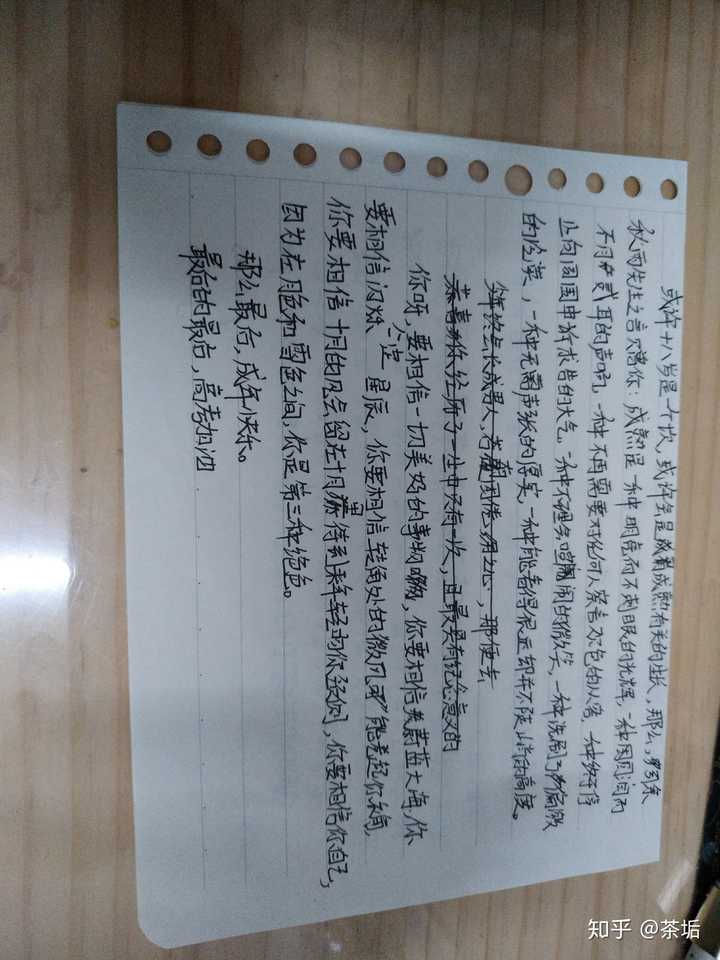 或许十八岁是一个坎，或许它是成熟有关的生长，那么，余
秋雨先生之言又赠你：成熟是一种明亮而不刺眼的光辉，一种圆润而
不腻耳的声响，一种不再需要对任何人察言观色的从容，一种终于停
止向周围申诉求告的大气，一种不理会喧闹的微笑，一种洗刷了偏激
的冷漠，一种无需声张的厚实，一种能看得很远却并不陡峭的高度。
少年终会长成男人，若，那便去
经历了一生中只有一次，且最具有纪念意义的
你呀，要相信一切美好的事物啊，你要相信蔚蓝大海，你
要相信闪烁星辰，你要相信转角处的微风一定能卷起你
你要相信十月的风会留在十月里等待到来年轻的你经过，你要相信你自己，
因为在月色和雪色之间，你是第三种绝色。
那么最后，成年快乐。
最后的最后，高考加油
知乎 @茶垢